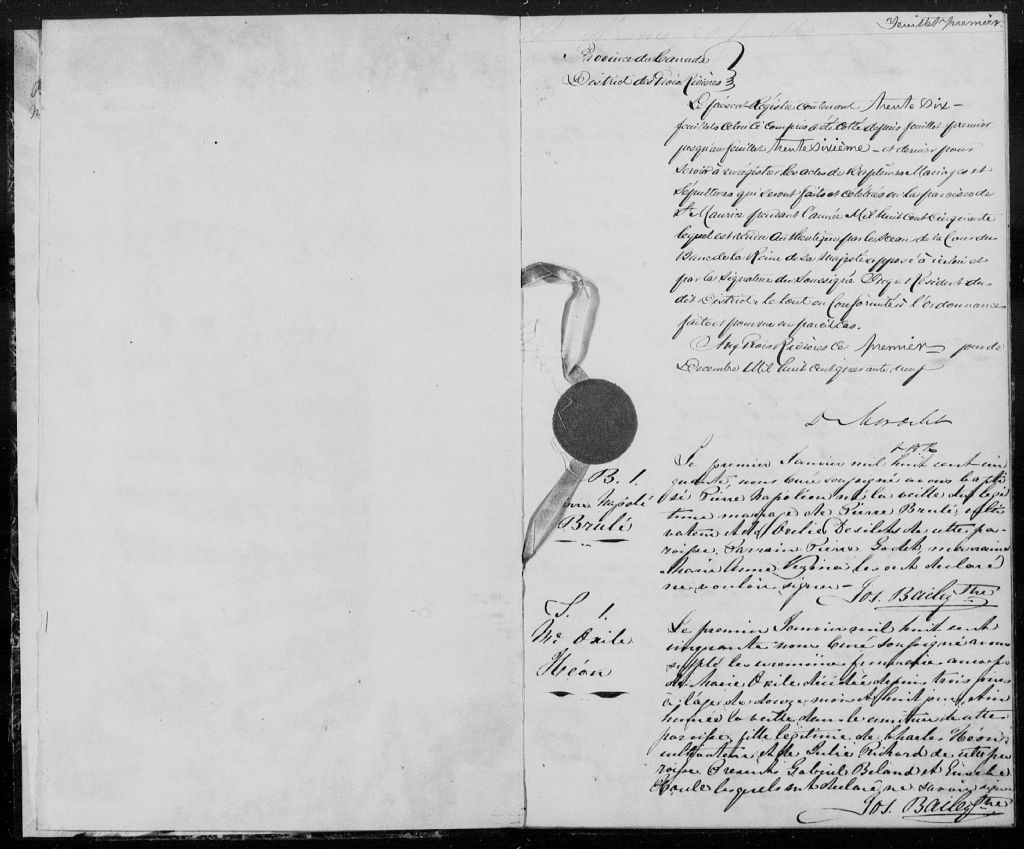 Feuillet premier.
Province du Canada
District des Trois Rivières
Le présent Régistre contenant trente Six
feuillets celui ci compris a été coté depuis feuillet premier
jusqu'au feuillet trente Sixième et dernier pour
servir à enrégistrer les actes de Baptêmes Mariages et
Sépultures qui seront faits et célébrés en la paroisse de
St Maurice pendant l'année Mil huit cent cinquante
lequel est rendu authentique par le Sceau de la Cour du
Banc de la Reine de Sa Majesté apposé à icelui et
par la signature du Soussigné Juge Résident du
dit District, le tout en Conformité à l'ordonnance
faite et pourvue en pareil cas.
Aux Trois Rivières ce premier jour de
Décembre Mil huit cent quarante neuf
B. 1.
Napolé
Brulé
Le premier Janvier mil huit cent cin
quante, nous curé soussigné avons bapti
sé Pierre Napoléon né la veille du légi
time mariage de Pierre Brulé, culti
vateur et de Orélie Desilets de cette pa
roisse. Parrain Pierre Godet, marraine
Marie Anne Vezina les ont déclaré
ne savoir signer
Jos. Bailey Ptre
S. 1.
Me Oxile
Héon
Le premier Janvier mil huit cent
cinquante nous Curé soussigné avons
suppléé les cérémonies funéraires au corps
de Marie Oxile décédée depuis trois jours
à l'âge de douze mois et huit jours, et in
humée la veille dans le cimetière de cette
paroisse, fille légitime de Charles Héon
cultivateur et de Julie Richard de cette pa
roisse. Présents Gabriel Beland et Eusebe
Houle lesquels ont déclaré ne savoir signer
Jos. Bailey Ptre